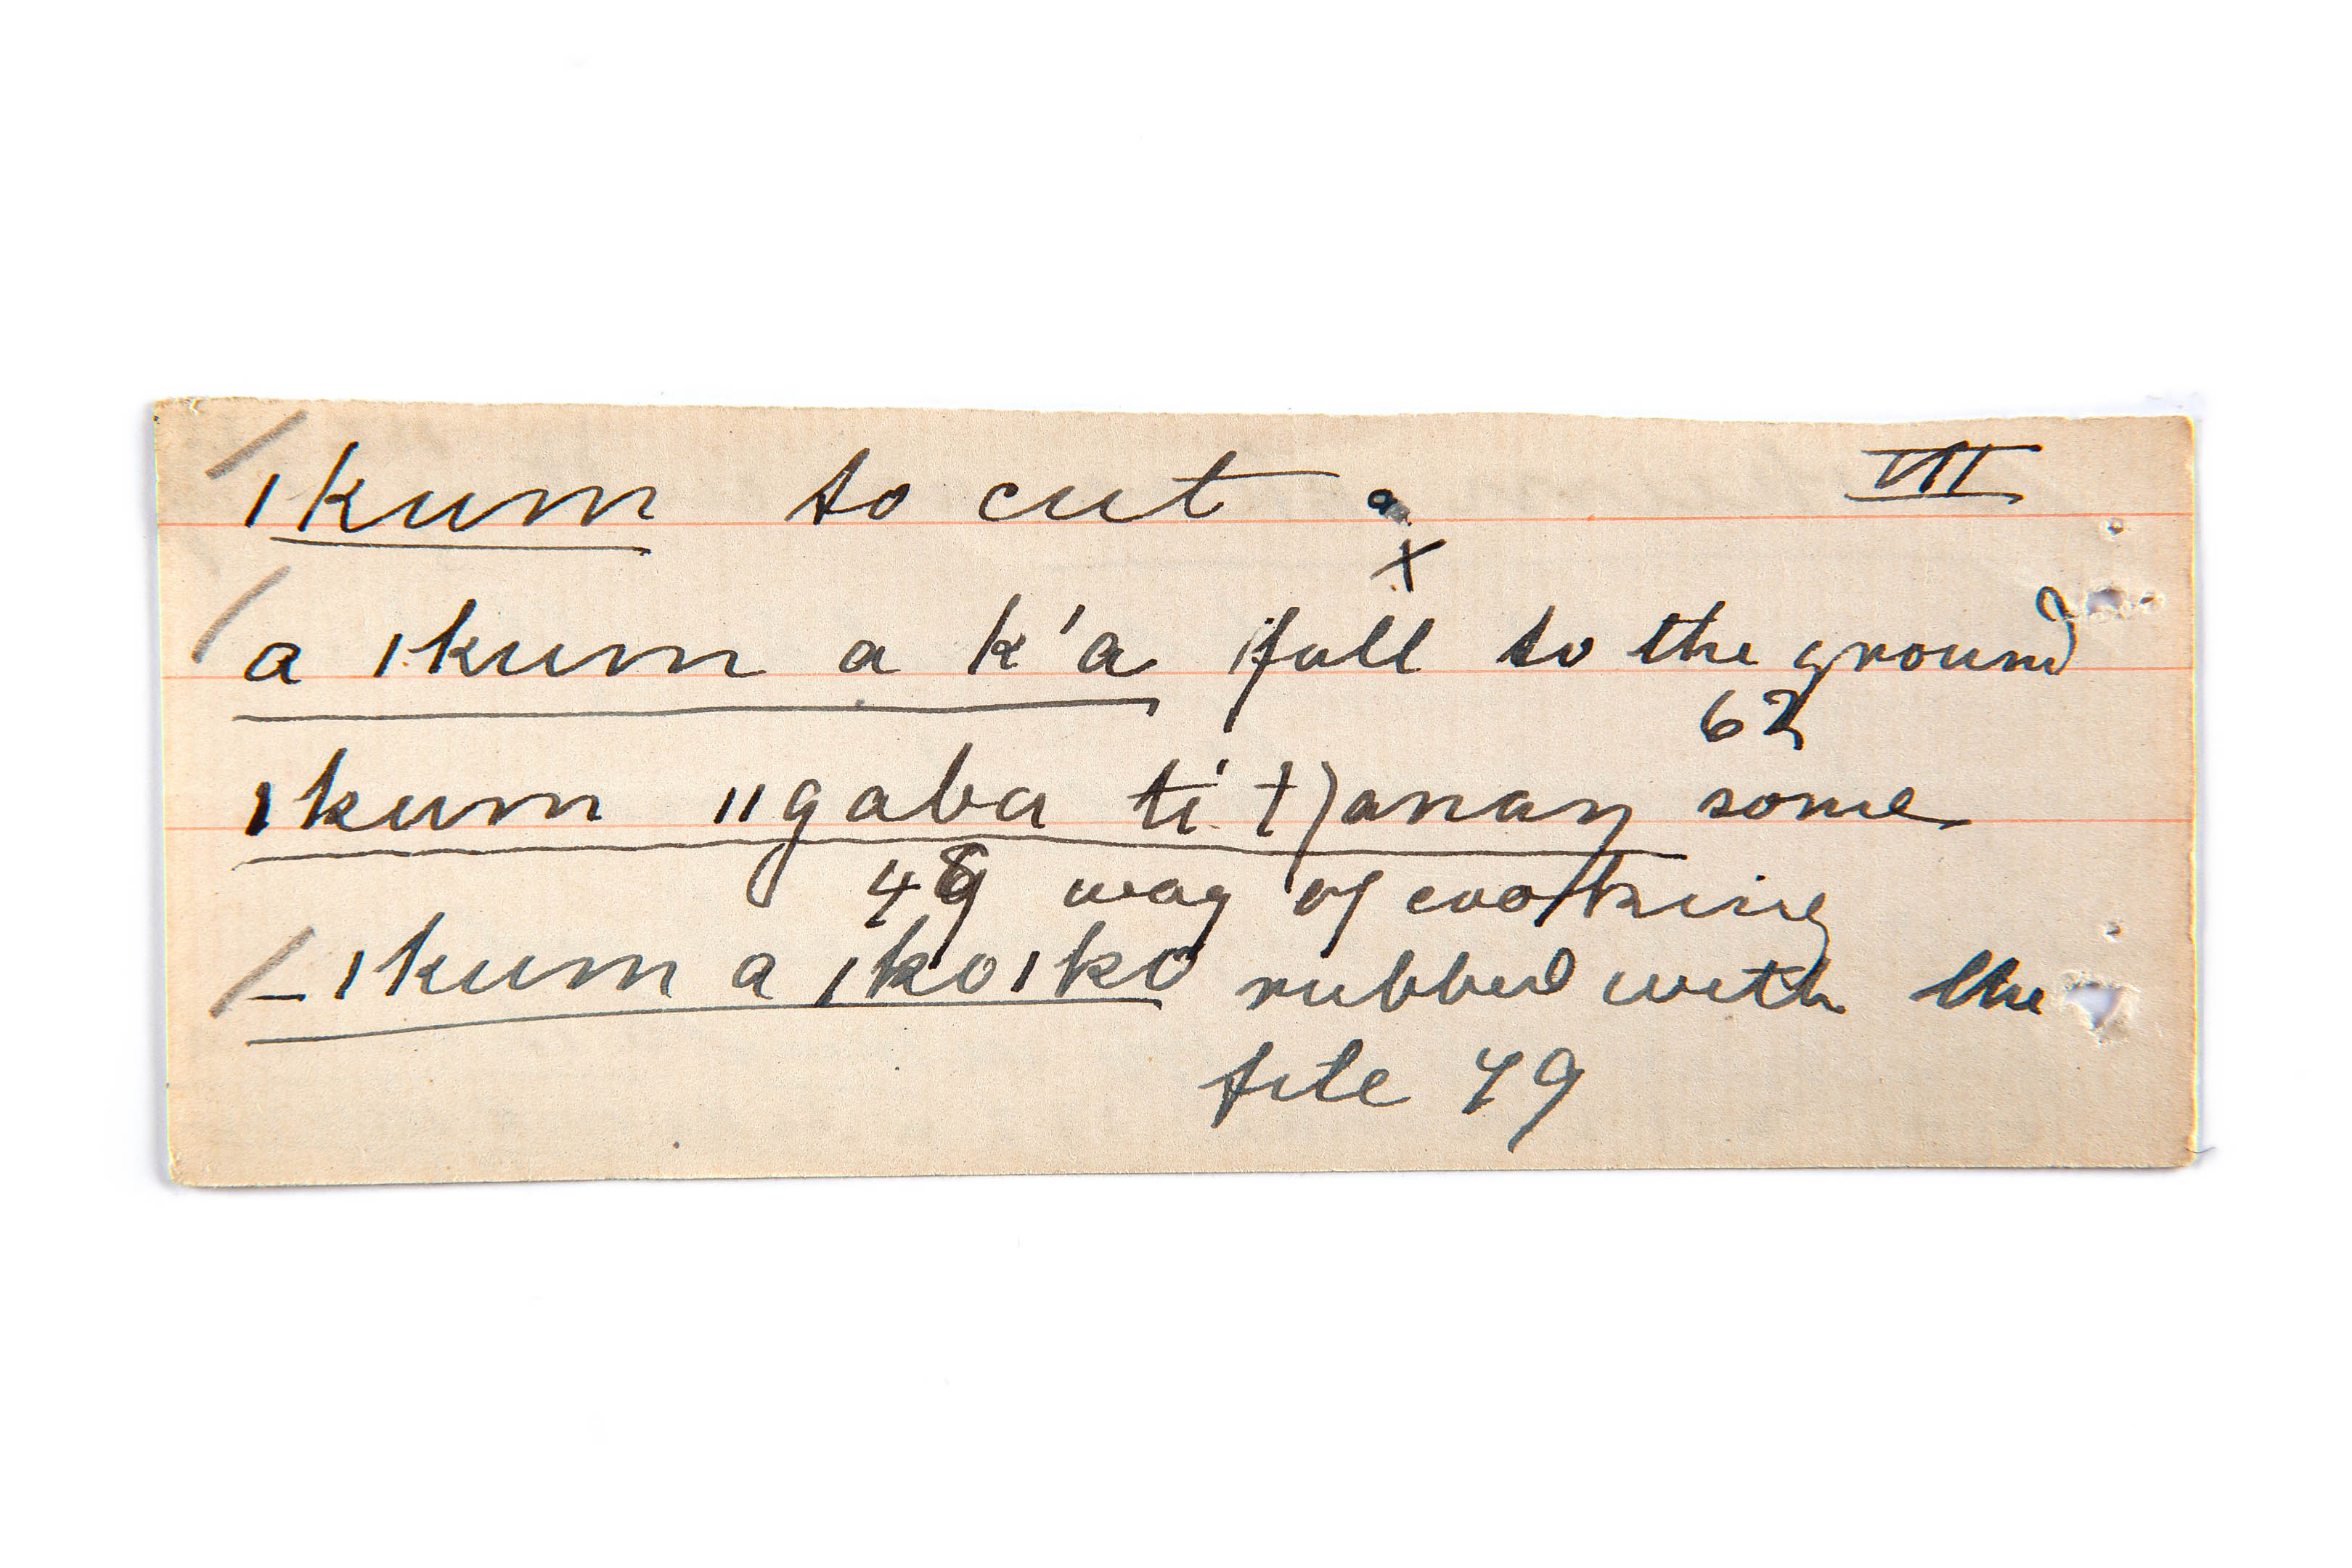 ıkum to cut a VII
x
a ıkum a k'a fall to the ground
62
ıkum ııgaba ti' t)anaŋ some
49 way of cooking
– ıkum a ıkoıko rubbed with the
file 49